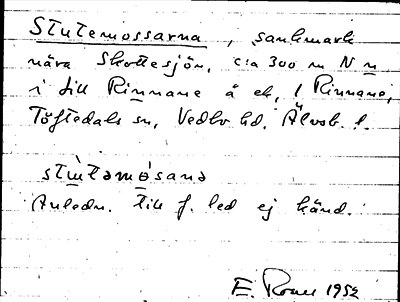 Stutemossarna, sankmark
nära Skottesjön, c:a 300 m N n
i till Rinnane å ek, 1 Rinnane,
Töftedals sn, Vedbo hd. Älvsb. l.
Anledn. till f. led ej känd.
E. 1952